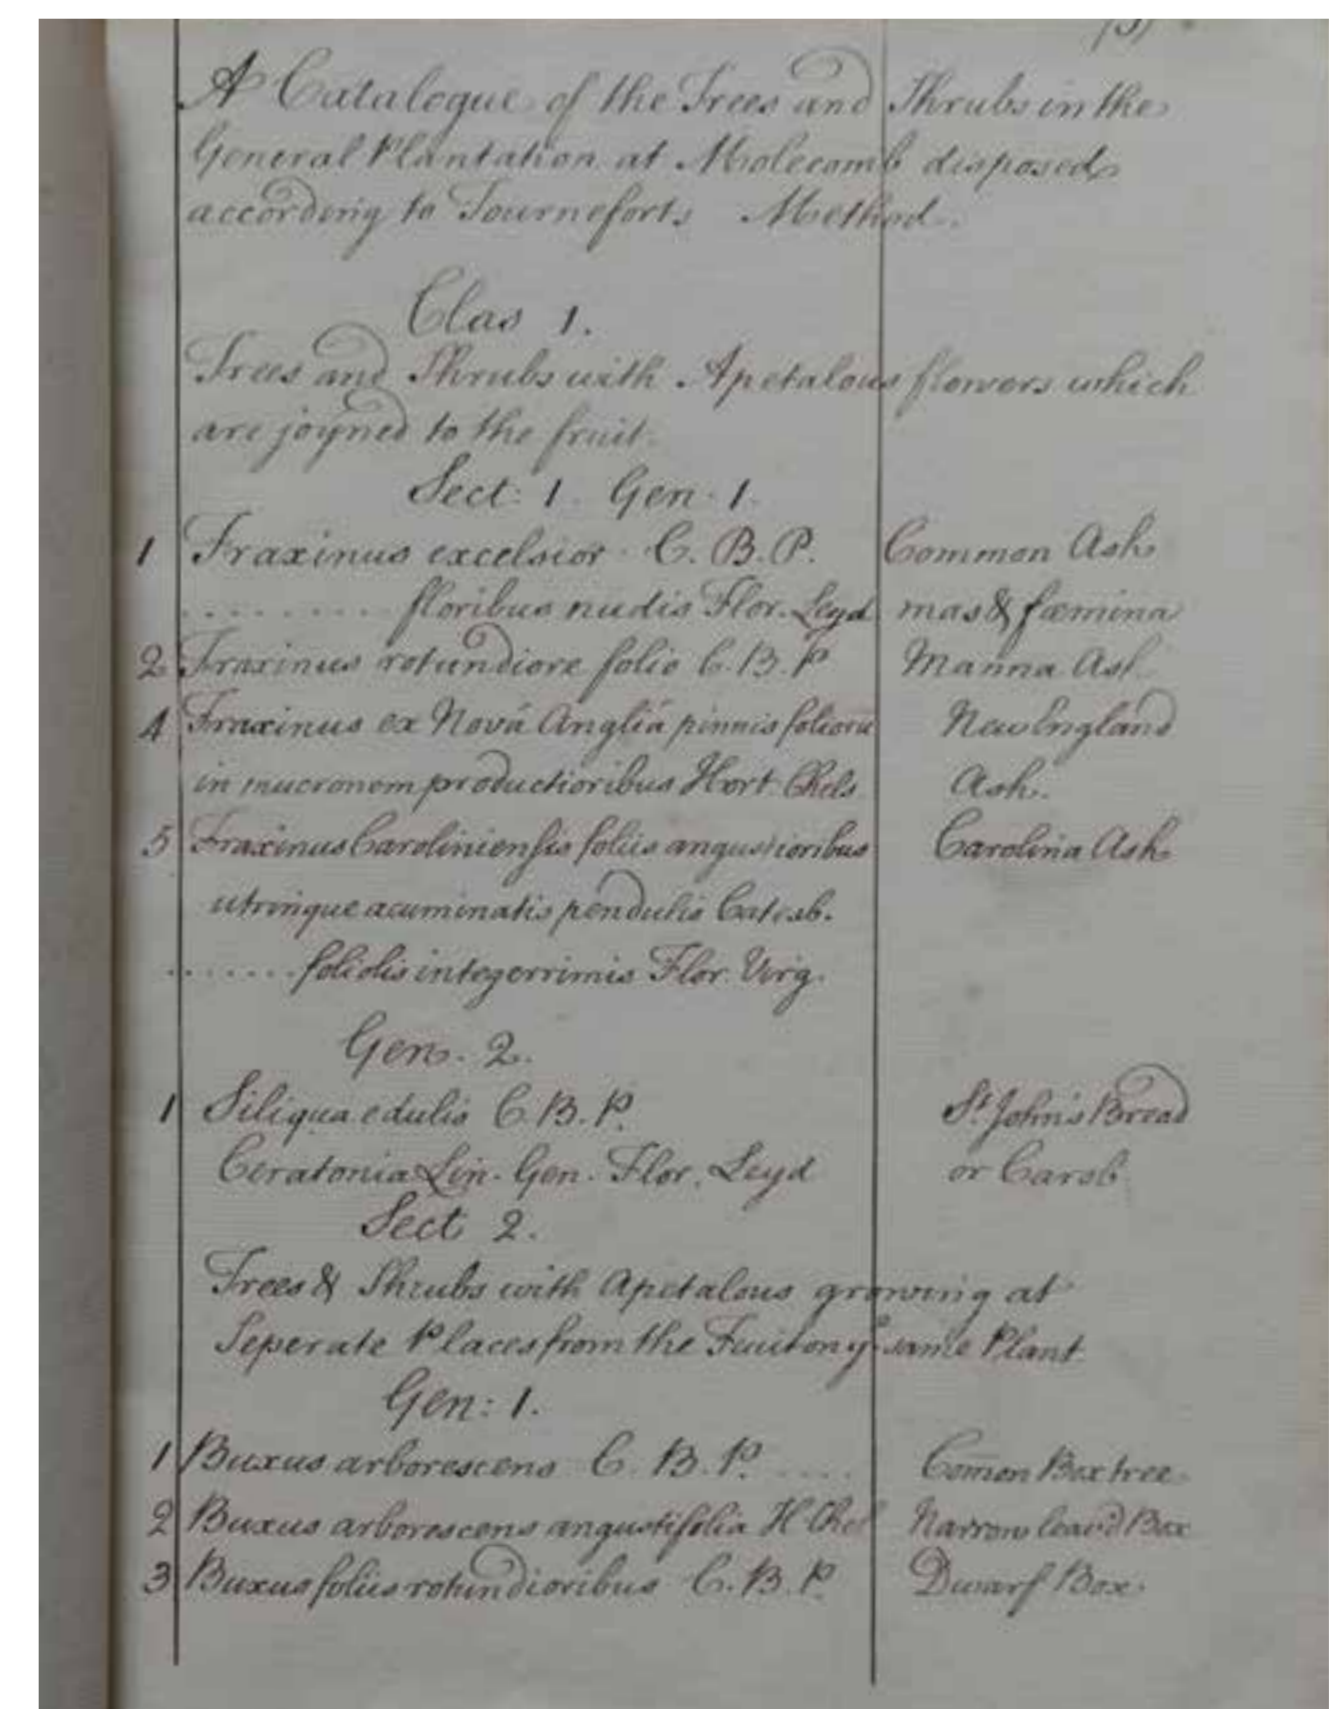 A Catalogue of the Trees and Shrubs in the
General Plantation at Molecomb disposed
according to Tourneforts Method.
Clas 1.
Trees and Shrubs with Apetalous flowers which
are joyned to the fruit.
Sect: 1. Gen. 1.
1 Fraxinus excelsior. C. B. P. Common Ash
......... floribus nudis Flor. Leyd mas & fœmina
2 Fraxinus rotundiore folio C. B. P Manna Ash
4 Fraxinus ex Novâ Angliâ pinnis folioru New England
in mucronem productioribus Hort Chels Ash.
5 Fraxinus Caroliniensis foliis angustioribus Carolina Ash
utrinque acuminatis pendulis Catesb.
....... foliolis integerrimis Flor. Virg.
Gen. 2.
1 Siliqua edulis C. B. P. St. John's Bread
Ceratonia Lin. Gen. Flor. Leyd or Carob
Sect 2.
Trees & Shrubs with Apetalous growing at
Seperate Places from the Fuuit on ye same Plant
Gen: 1.
1 Buxus arborescens C. B. P. .... Com̄on Box tree
2 Buxus arborescens angustifolia H Chel Narrow leav'd Box
3 Buxus foliis rotundioribus C. B. P. Dwarf Box.